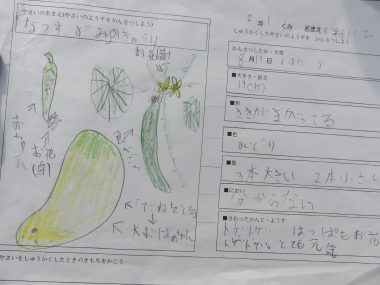 やさいのなまえ(やさいのようすをかんさつしよう)
なつやすみのきゅうり
お花(黄)
赤ちゃん
お花
(白)
「たねをとる」
大おばあちゃん
やさいをしゅうかくしたときのきもちをかこう
2年1くみ なまえ
しゅうかくしたやさいのようすを かんさつしよう
かんさつした日・天気
8月19日(はれ)
■大きさ・長さ
19cm
■形
■色
みどり
■数
3本大きい 2本小さい
■におい
わからない
■さわったかんじ・ようす
トゲトゲ はっぱもお花も
トゲトゲ とても元気